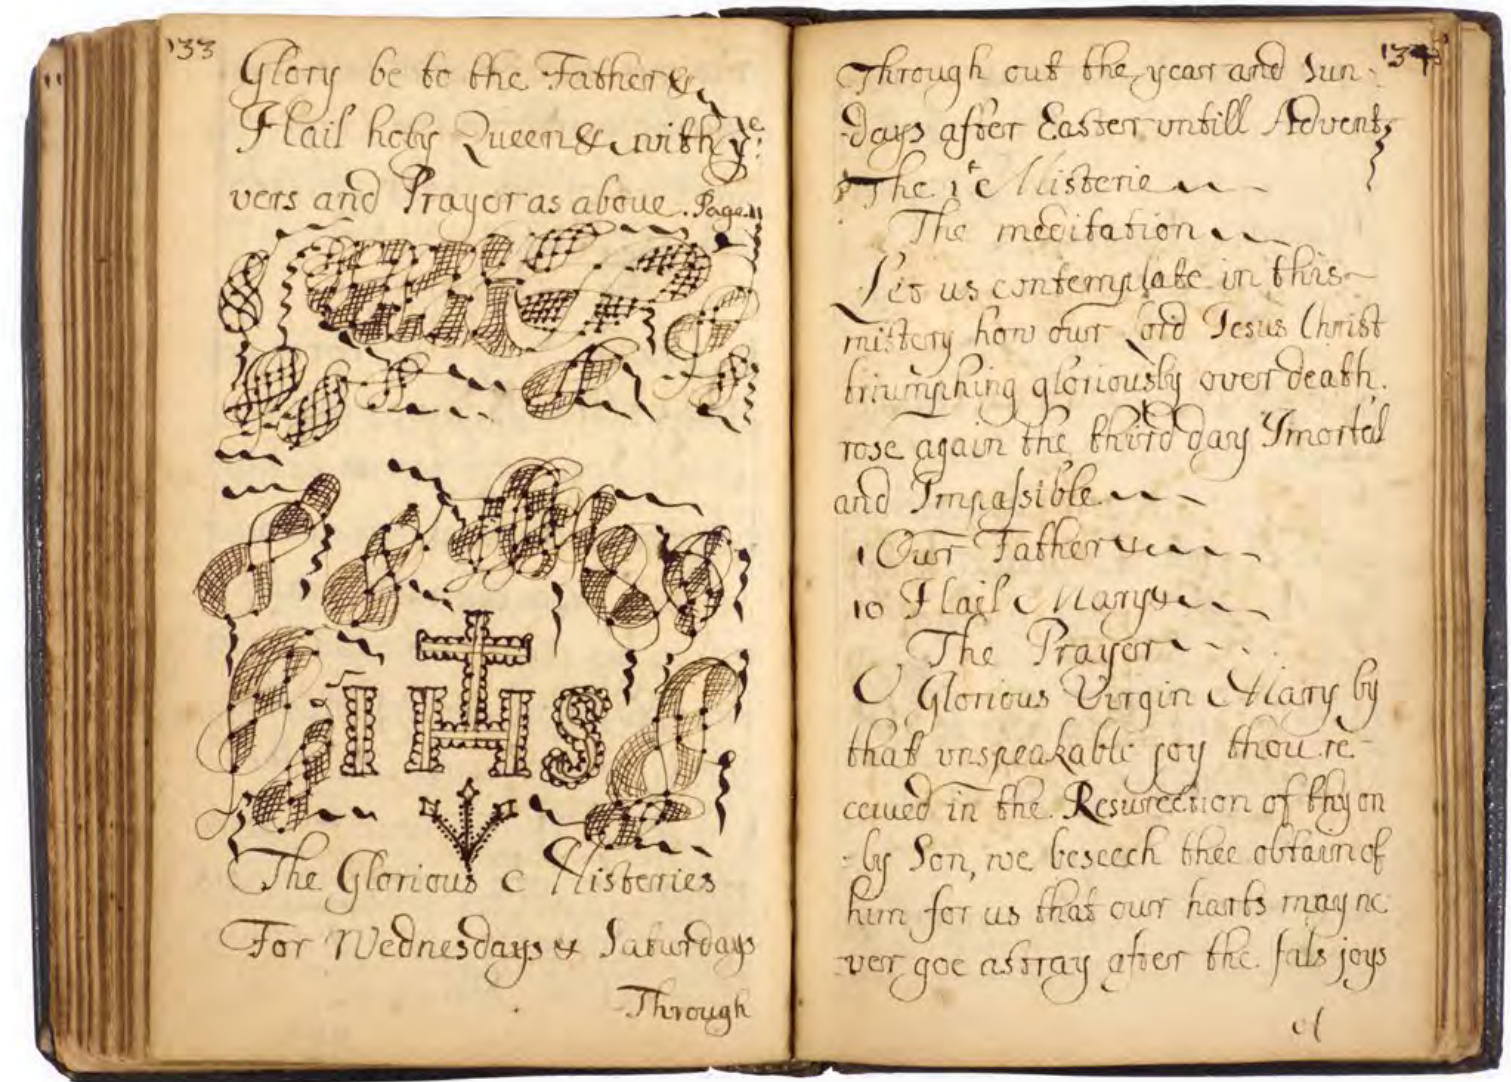 133
Glory be to the Father &
Hail holy Queen & with yͤ:
vers and Prayer as aboue. Page. 11
IHS
The Glorious Misteries
For Wednesdays & Saturdays
Through
134
Through out the year and Sun-
-days after Easter vntill Advent
The 1ᵗ Misterie
The meditation
Let us contemplate in this
mistery how our Lord Jesus Christ
triumphing gloriously over death.
rose again the third day Imortal
and Impaſsible
1 Our Father &
10 Hail Mary &
The Prayer
O Glorious Virgin Mary by
that vnspeakable joy thou re-
ceiued in the Resurection of thy on
-ly Son, we beseech thee obtain of
him for us that our harts may ne
-ver goe astray after the fals joys
of